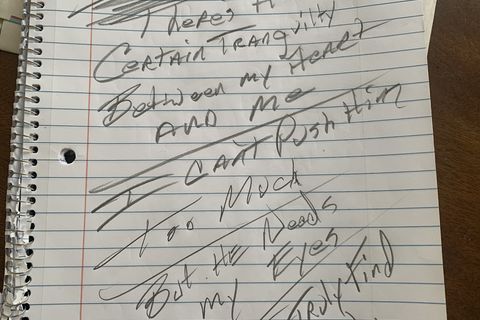 Theres A
Certain Tranquilty
Between my Heart
And Me
I Can't Push Him
Too Much
But He Needs
My Eyes
Truly Find